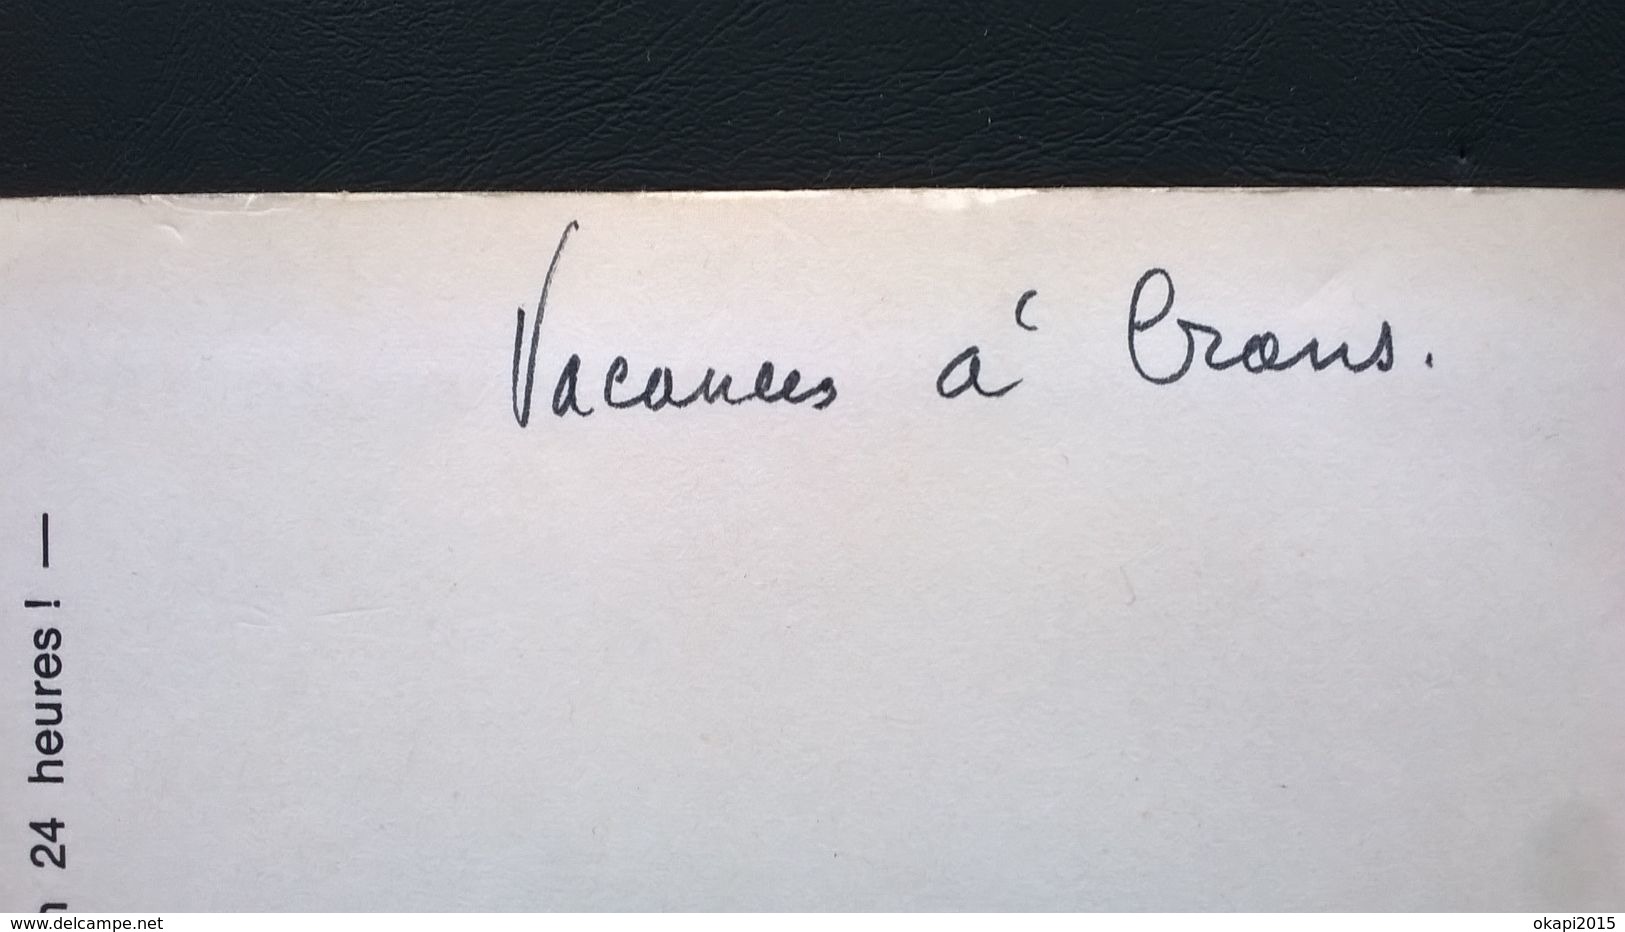 Vacances à Crans.
24 heures ! —
www.delcampe.net
okapi2015